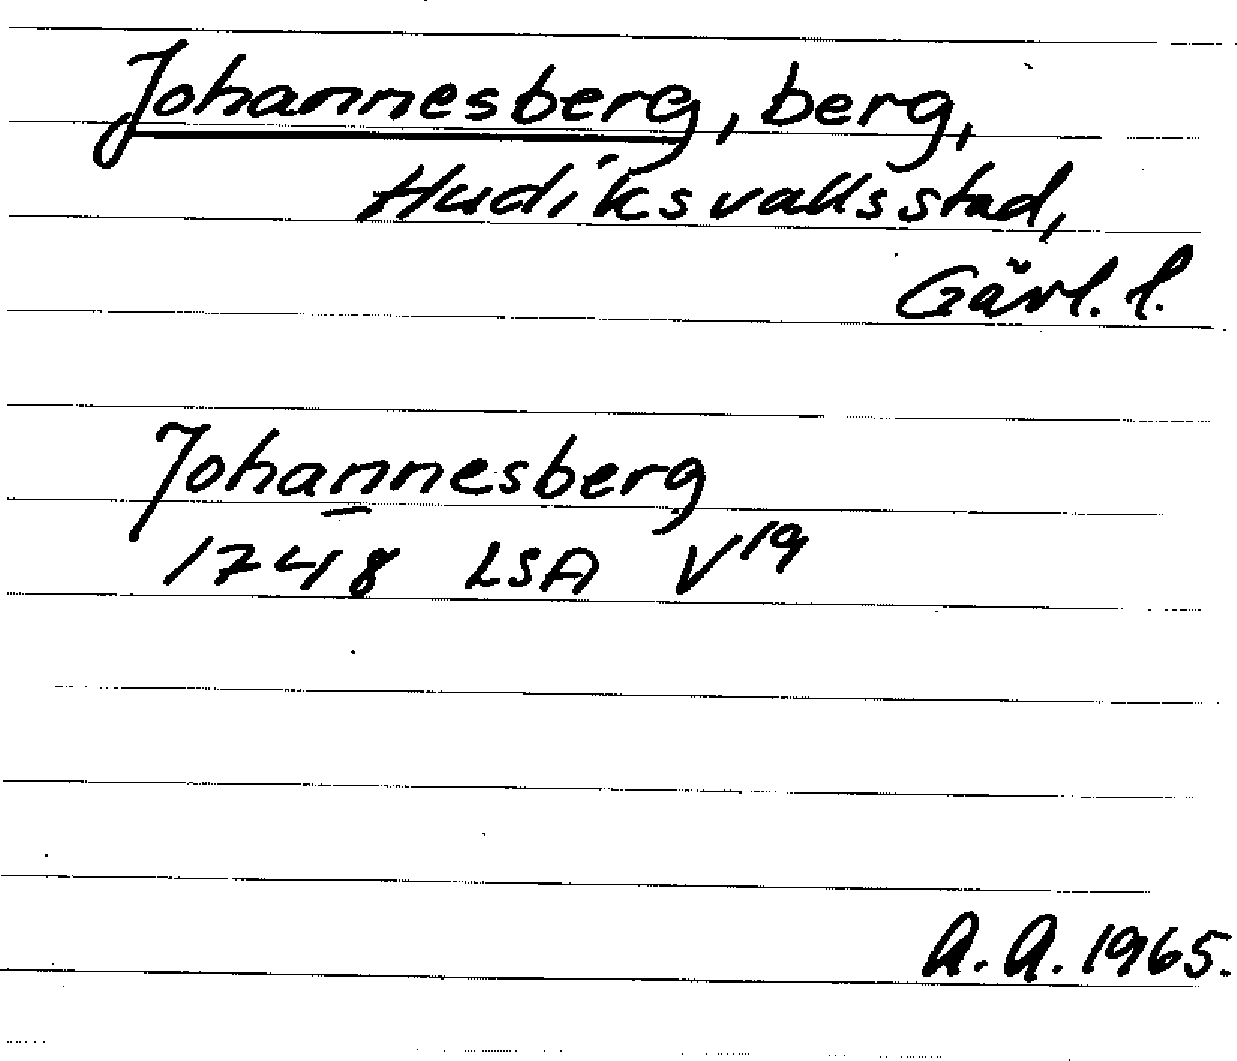 Johannesberg, berg,
Hudiksvalls stad,
Gävl. l.
Johannesberg
1748 LSA V19
A. A. 1965.